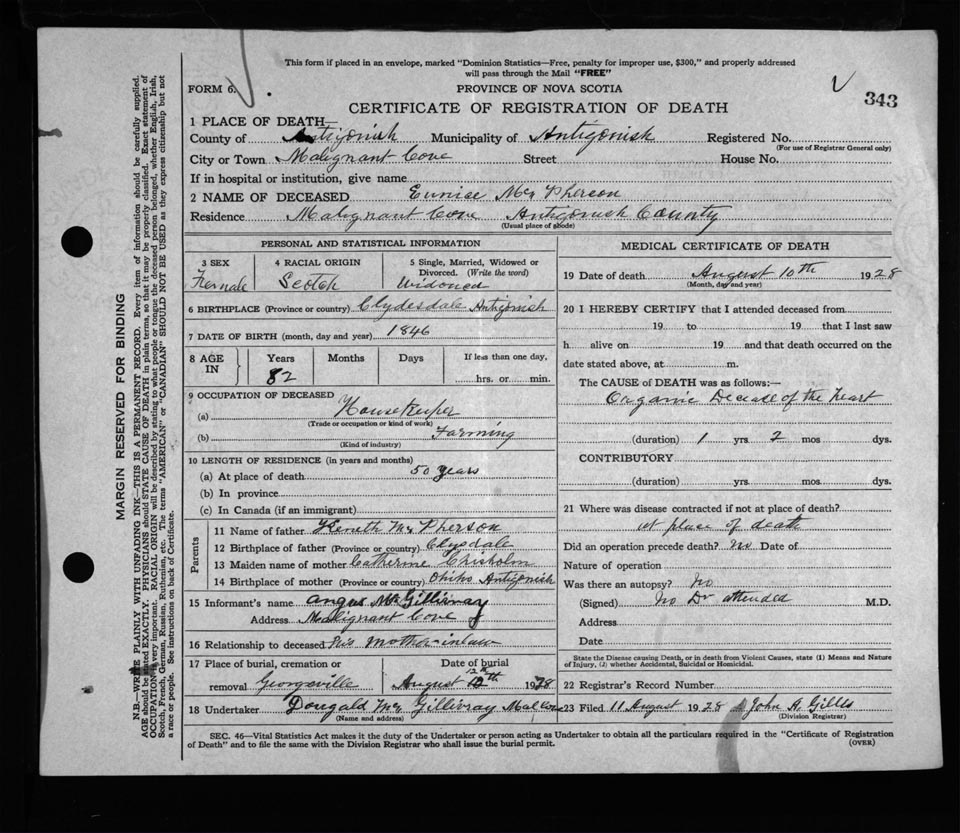 This form if placed in an envelope, marked "Dominion Statistics—Free, penalty for improper use, $300," and properly addressed
will pass through the Mail "FREE"
FORM 6. PROVINCE OF NOVA SCOTIA 343
CERTIFICATE OF REGISTRATION OF DEATH
1 PLACE OF DEATH
County of Antigonish Municipality of Antigonish Registered No.
(For use of Registrar General only)
City or Town Malignant Cove Street House No.
If in hospital or institution, give name
2 NAME OF DECEASED Eunice McPherson
Residence Malignant Cove Antigonish County
(Usual place of abode)
PERSONAL AND STATISTICAL INFORMATION
3 SEX 4 RACIAL ORIGIN 5 Single, Married, Widowed or
Divorced. (Write the word)
Female Scotch Widowed
6 BIRTHPLACE (Province or country) Clydesdale Antigonish
7 DATE OF BIRTH (month, day and year) 1846
8 AGE IN Years Months Days If less than one day,
82 hrs. or min.
9 OCCUPATION OF DECEASED
(a) Housekeeper
(Trade or occupation or kind of work)
(b) Farming
(Kind of industry)
10 LENGTH OF RESIDENCE (in years and months)
(a) At place of death 50 years
(b) In province
(c) In Canada (if an immigrant)
Parents
11 Name of father Kenneth McPherson
12 Birthplace of father (Province or country) Clysdale
13 Maiden name of mother Catherine Chisholm
14 Birthplace of mother (Province or country) Antigonish
15 Informant's name Angus McGillivray
Address Malignant Cove
16 Relationship to deceased His Mother-inlaw
17 Place of burial, cremation or Date of burial
removal Georgeville August 12th 1928
18 Undertaker Dougald McGillivray Mal Cove
(Name and address)
MEDICAL CERTIFICATE OF DEATH
19 Date of death August 10th 1928
(Month, day and year)
20 I HEREBY CERTIFY that I attended deceased from
19 to 19 that I last saw
h alive on 19 and that death occurred on the
date stated above, at m.
The CAUSE OF DEATH was as follows:—
Organic Decease of the heart
(duration) 1 yrs 2 mos dys.
CONTRIBUTORY
(duration) yrs mos dys.
21 Where was disease contracted if not at place of death?
at place of death
Did an operation precede death? No Date of
Nature of operation
Was there an autopsy? No
(Signed) No Dr attended M.D.
Address
Date
State the Disease causing Death, or in death from Violent Causes, state (1) Means and Nature
of Injury, (2) whether Accidental, Suicidal or Homicidal.
22 Registrar's Record Number
23 Filed 11 August 1928 John A. Gillis
(Division Registrar)
SEC. 46—Vital Statistics Act makes it the duty of the Undertaker or person acting as Undertaker to obtain all the particulars required in the "Certificate of Registration
of Death" and to file the same with the Division Registrar who shall issue the burial permit. (OVER)
MARGIN RESERVED FOR BINDING
N.B.—WRITE PLAINLY WITH UNFADING INK—THIS IS A PERMANENT RECORD. Every item of information should be carefully supplied.
AGE should be stated EXACTLY. PHYSICIANS should STATE CAUSE OF DEATH in plain terms, so that it may be properly classified. Exact statement of
OCCUPATION is very important. RACIAL ORIGIN will be described by stating to what people or tongue the deceased person belonged, whether English, Irish,
Scotch, French, German, Russian, Ruthenian, etc. The terms "AMERICAN" or "CANADIAN" SHOULD NOT BE USED as they express citizenship but not
a race or people. See instructions on back of Certificate.